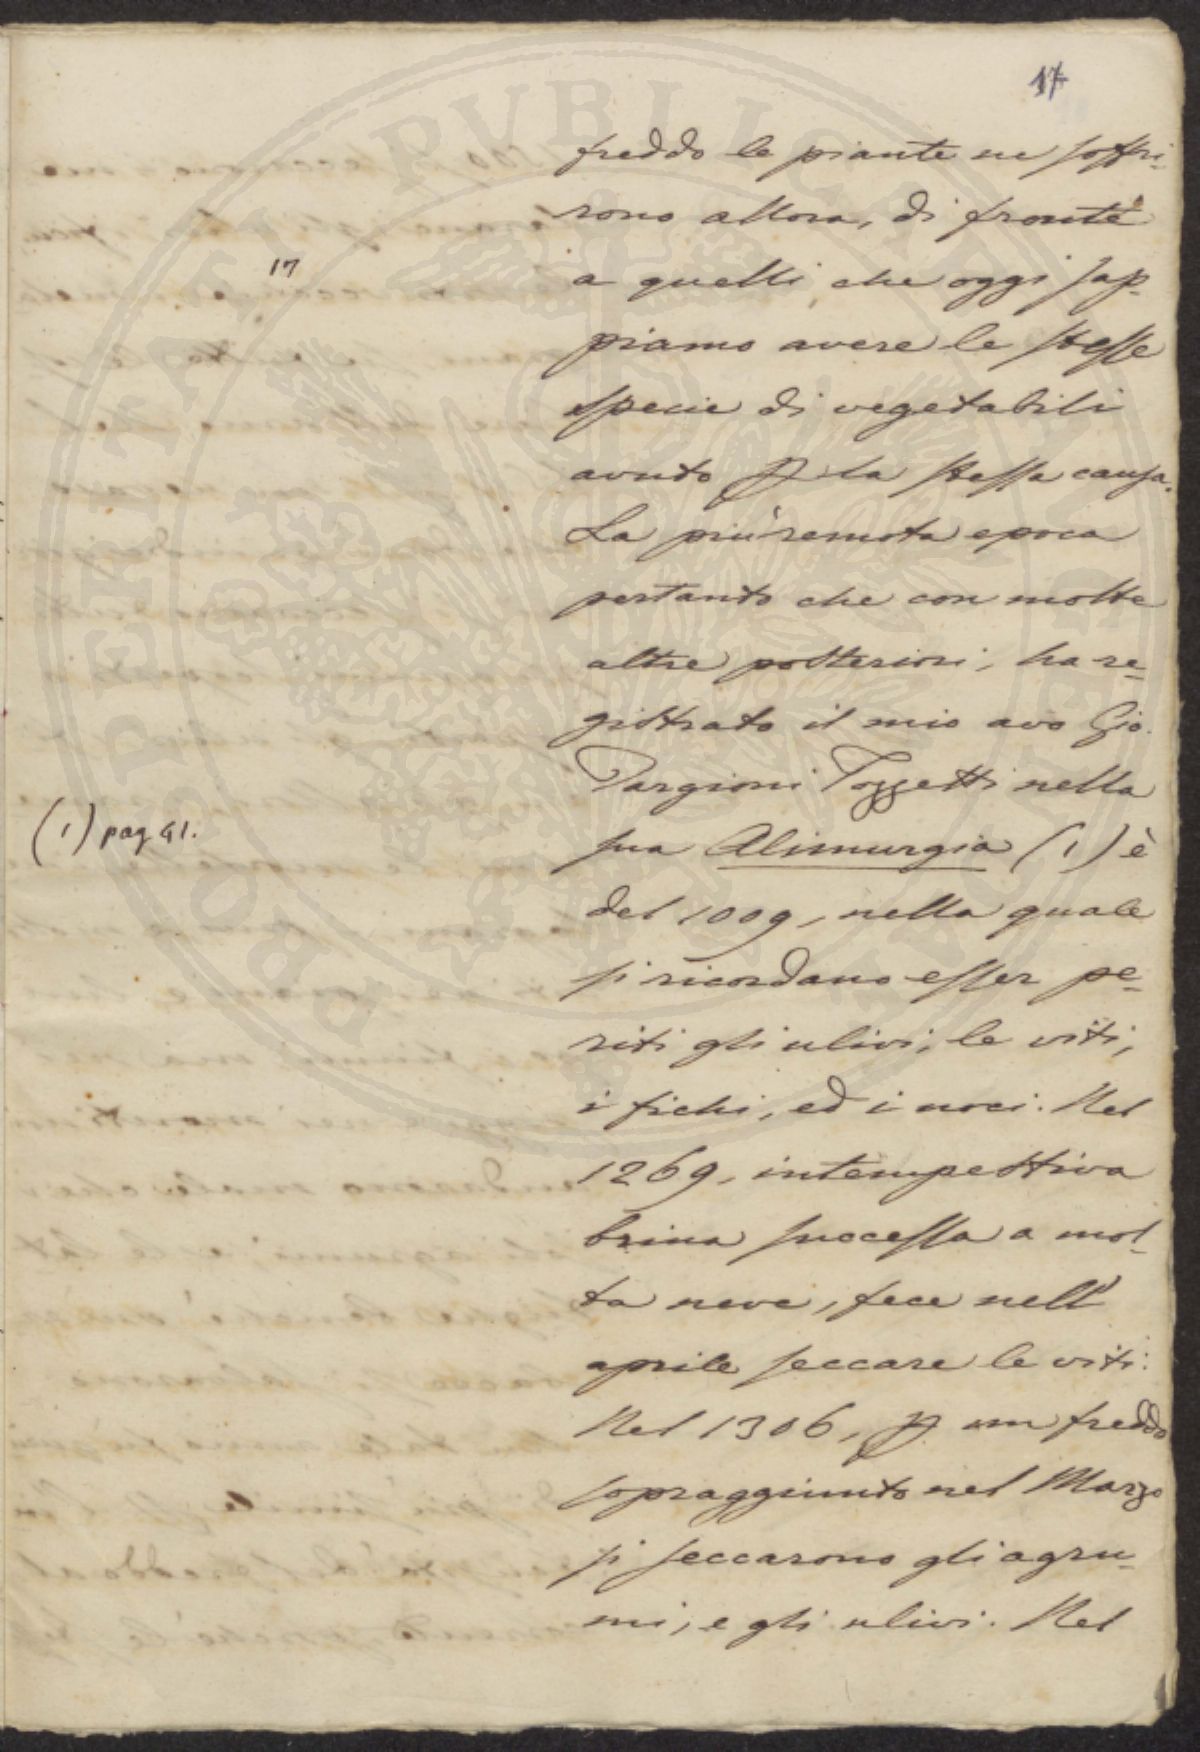 17
freddo le piante ne soffri-
rono allora, di fronte
17
a quelli che oggi sap-
piamo avere le stesse
specie di vegetabili
avuto p la stessa causa.
La più remota epoca
pertanto che con molte
altre posteriori, ha re-
gistrato il mio avo Gio.
Targioni Tozzetti nella
(1) pag 41.
sua Alimurgia (1) è
del 1009, nella quale
si ricordano esser pe-
riti gli ulivi, le viti,
i fichi, ed i noci. Nel
1269, intempestiva
brina successa a mol-
ta neve, fece nell'
aprile seccare le viti.
Nel 1306, p un freddo
sopraggiunto nel Marzo
si seccarono gli agru-
mi, e gli ulivi. Nel